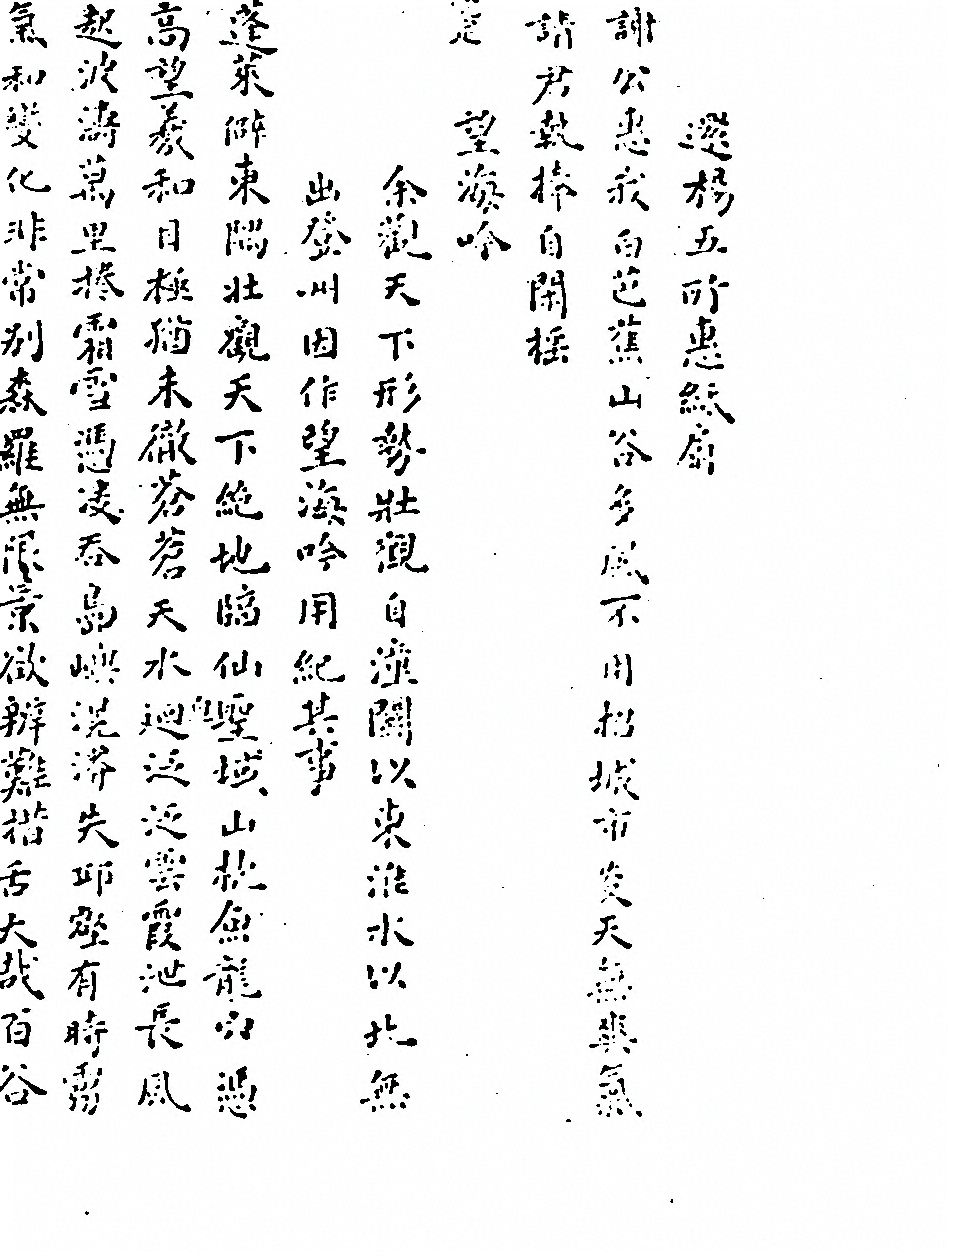 還楊五所惠紙扇
謝公惠我白芭蕉山谷多風不用招城市炎天無爽氣
請君執捧自閑搖
望海吟
余觀天下形勢壯觀自潼關以東淮水以北無
出登州因作望海吟用紀其事
蓬萊僻東隅壯觀天下絶地臨仙聖域山枕魚龍穴憑
高望羲和目極猶未徹蒼蒼天水迴泛泛雲霞泄長風
起波濤萬里捲霜雪憑凌吞島嶼滉漭失邱壑有時霧
氣和變化非常別森羅無限景欲辨難措舌大哉百谷